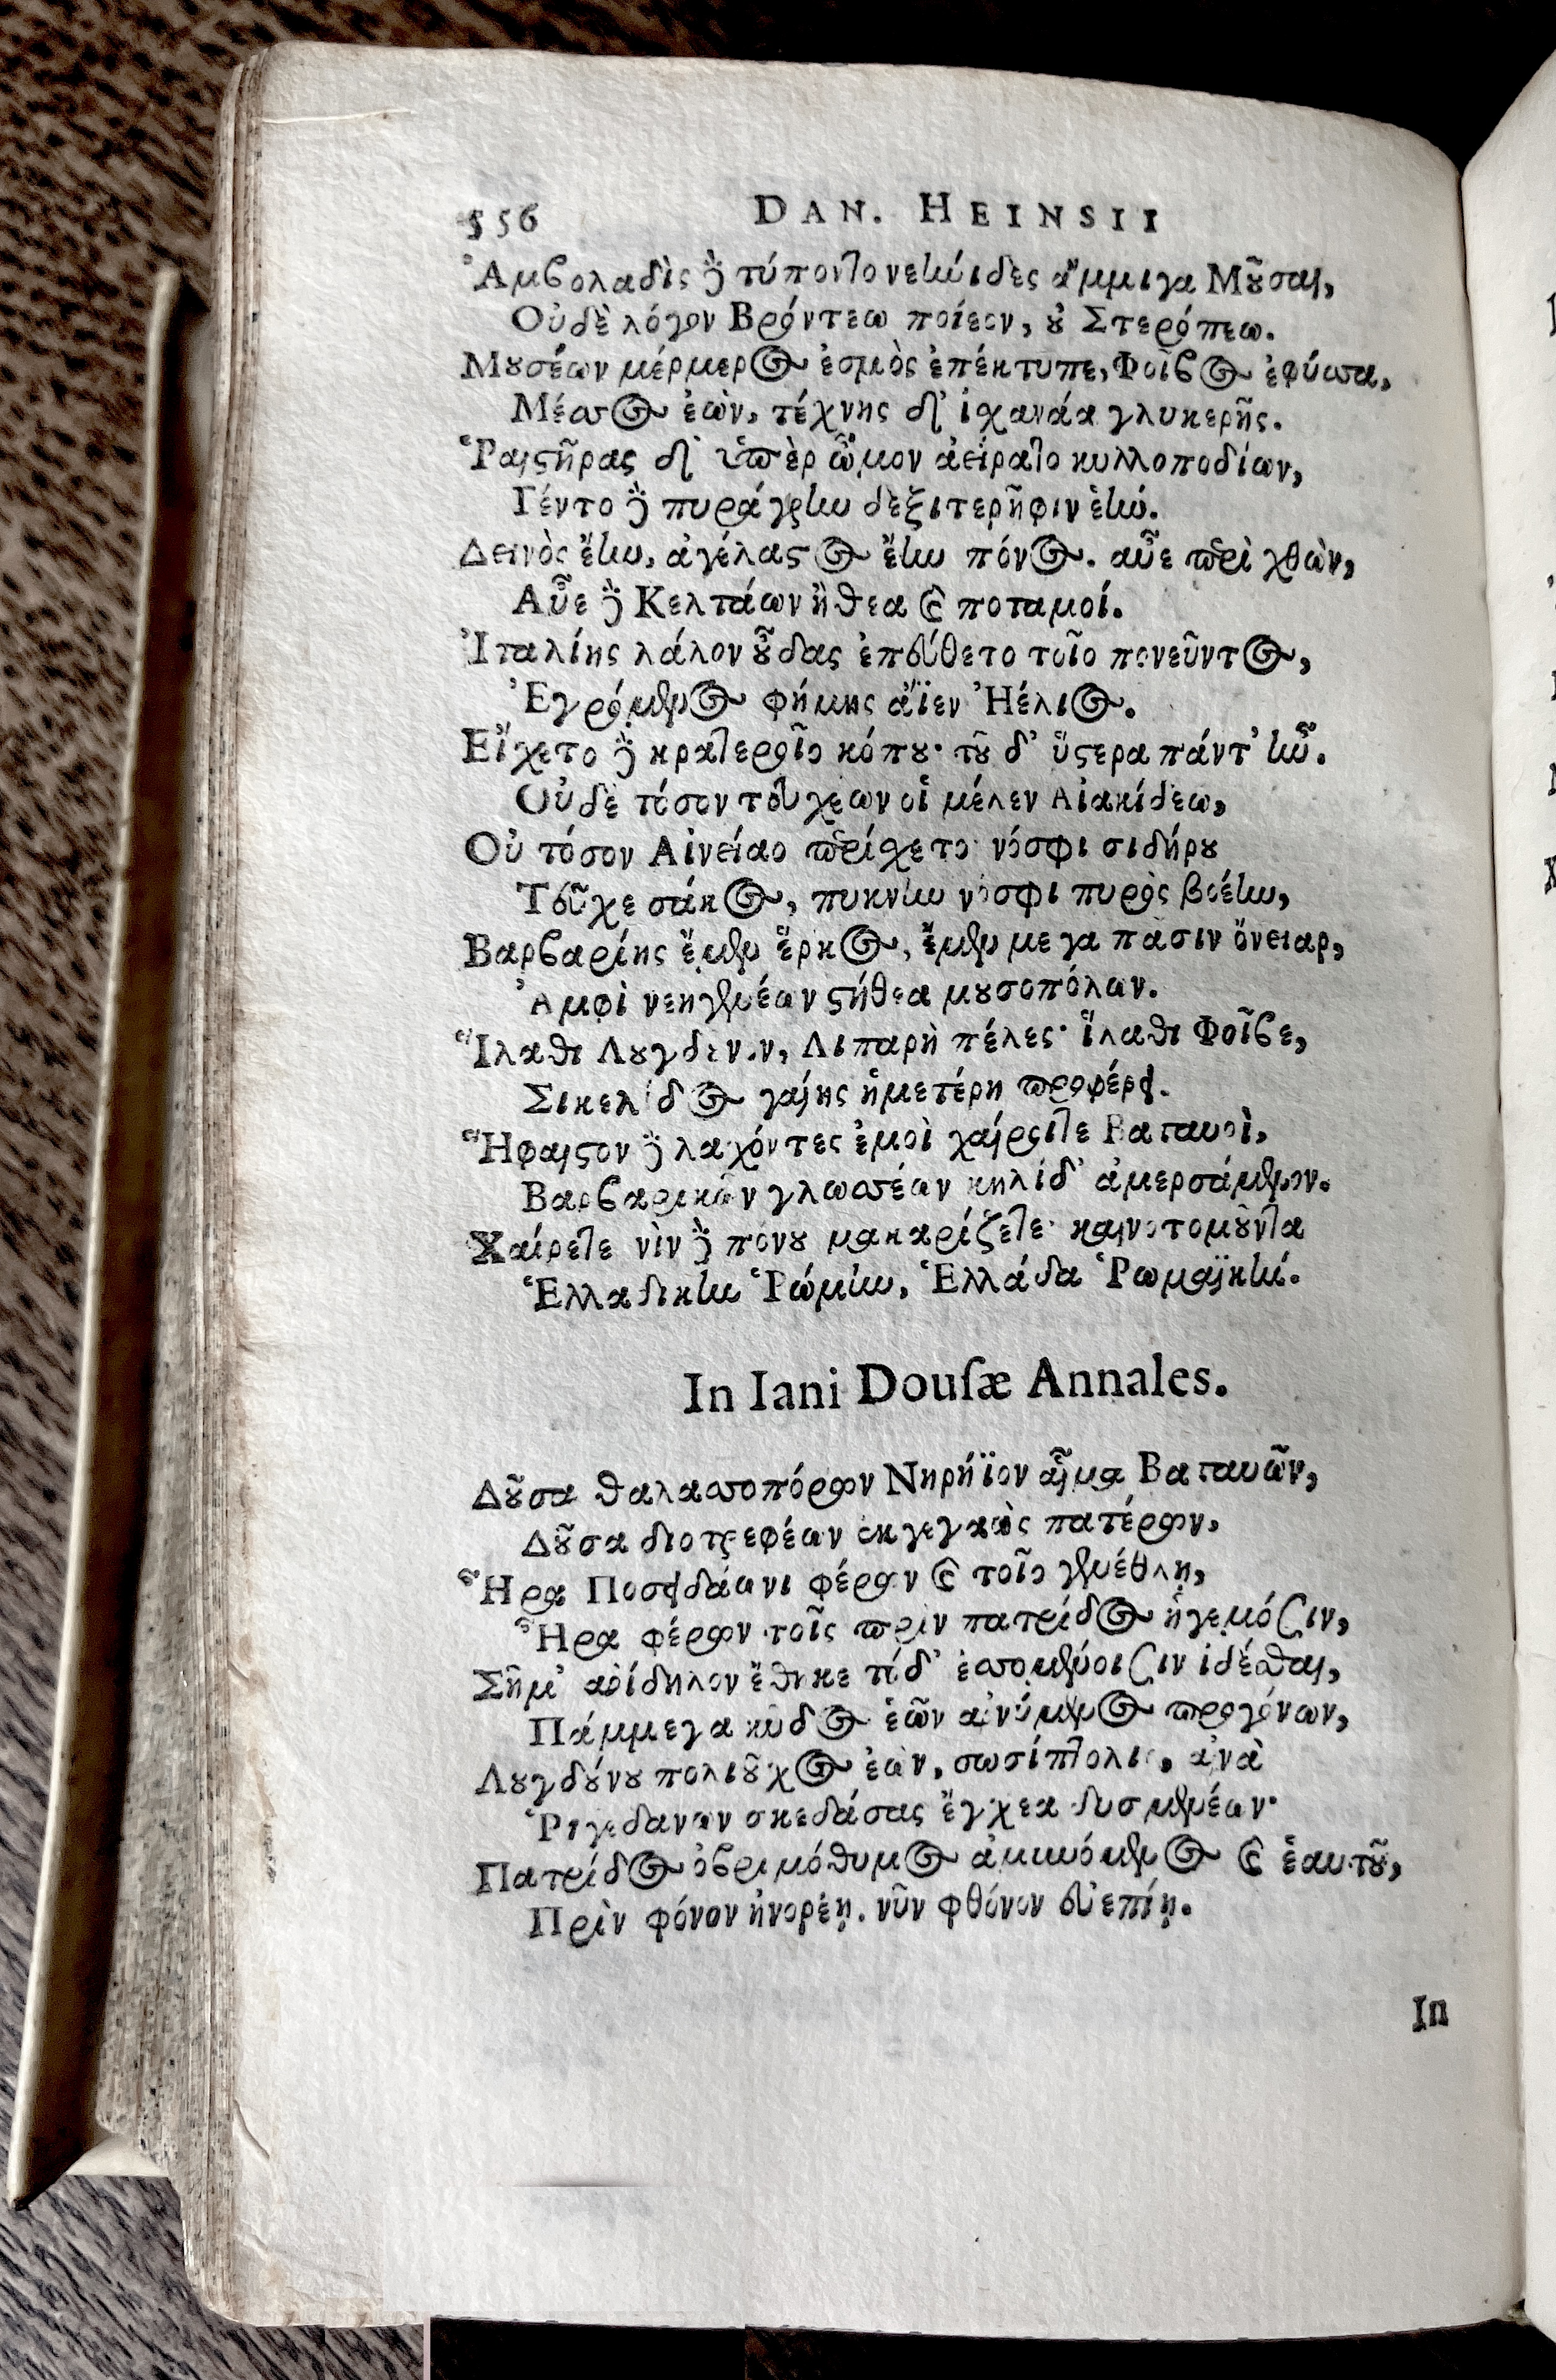 556 DAN. HEINSII
Ἀμβολαδὶς δὲ τύποντο νεηνίδες ἄμμιγα Μοῦσαι,
Οὐδὲ λόγον Βρόντεω ποίεον, οὐ Στερόπεω.
Μουσέων μέρμερος ἑσμὸς ἐπέκτυπε, Φοῖβος ἐφύσσα,
Μέσσος ἐὼν, τέχνης δ' ἰχανάα γλυκερῆς.
Ῥαιστῆρας δ' ὑπὲρ ὦμον ἀείρατο κυλλοποδίων,
Γέντο δὲ πυράγρην δεξιτερῆφιν ἑήν.
Δεινὸς ἔην, ἀγέλαστος ἔην πόνος. αὖε περὶ χθὼν,
Αὖε δὲ Κελτάων ἤθεα καὶ ποταμοί.
Ἰταλίης λάλον οὖδας ἐπεύθετο τοῖο πονεῦντος,
Ἐγρόμενος φήμης ἄϊεν Ἠέλιος.
Εἴχετο δὲ κρατεροῖο κόπου· τοῦ δ' ὕστερα πάντ' ἦν.
Οὐδὲ τόσον τεύχεων οἱ μέλεν Αἰακίδεω,
Οὐ τόσον Αἰνείαο περίχετο· νόσφι σιδήρου
Τεῦχε σάκος, πυκνὴν νόσφι πυρὸς βοέην,
Βαρβαρίης ἔμεν ἕρκος, ἔμεν μεγα πᾶσιν ὄνειαρ,
Ἀμφὶ νεηγενέων στήθεα μουσοπόλων.
Ἵλαθι Λουγδενον, Λιπαρὴ πέλες· ἵλαθι Φοῖβε,
Σικελίδος γαίης ἡμετέρη προφέρει.
Ἥφαιστον δὲ λαχόντες ἐμοὶ χαίροιτε Βαταυοὶ,
Βαρβαρικῶν γλωσσέων κηλίδ' ἀμερσάμενον.
Χαίρετε νὶν δὲ πόνου μακαρίζετε· καινοτομοῦντα
Ἑλλαδικὴν Ῥώμην, Ἑλλάδα Ῥωμαϊκήν.
In Iani Douſæ Annales.
Δοῦσα θαλασσοπόρων Νηρήϊον αἷμα Βαταυῶν,
Δοῦσα διοτρεφέων ἐκγεγαὼς πατέρων,
Ἦρα Ποσειδάωνι φέρων καὶ τοῖο γενέθλῃ,
Ἦρα φέρων τοῖς πρὶν πατρίδος ἡγεμόσιν,
Σῆμ' ἀρίδηλον ἔθηκε τίδ' ἐσσομένοισιν ἰδέσθαι,
Πάμμεγα κῦδος ἑῶν αἰνύμενος προγόνων,
Λουγδούνου πολιοῦχος ἐὼν, σωσίπτολις, ἀνὰ
Ῥιγεδανων σκεδάσας ἔγχεα δυσμενέων·
Πατρίδος ὀβριμόθυμος ἀμυνόμενος καὶ ἑαυτοῦ,
Πρὶν φόνον ἠνορέῃ. νῦν φθόνον εὐεπίῃ.
In